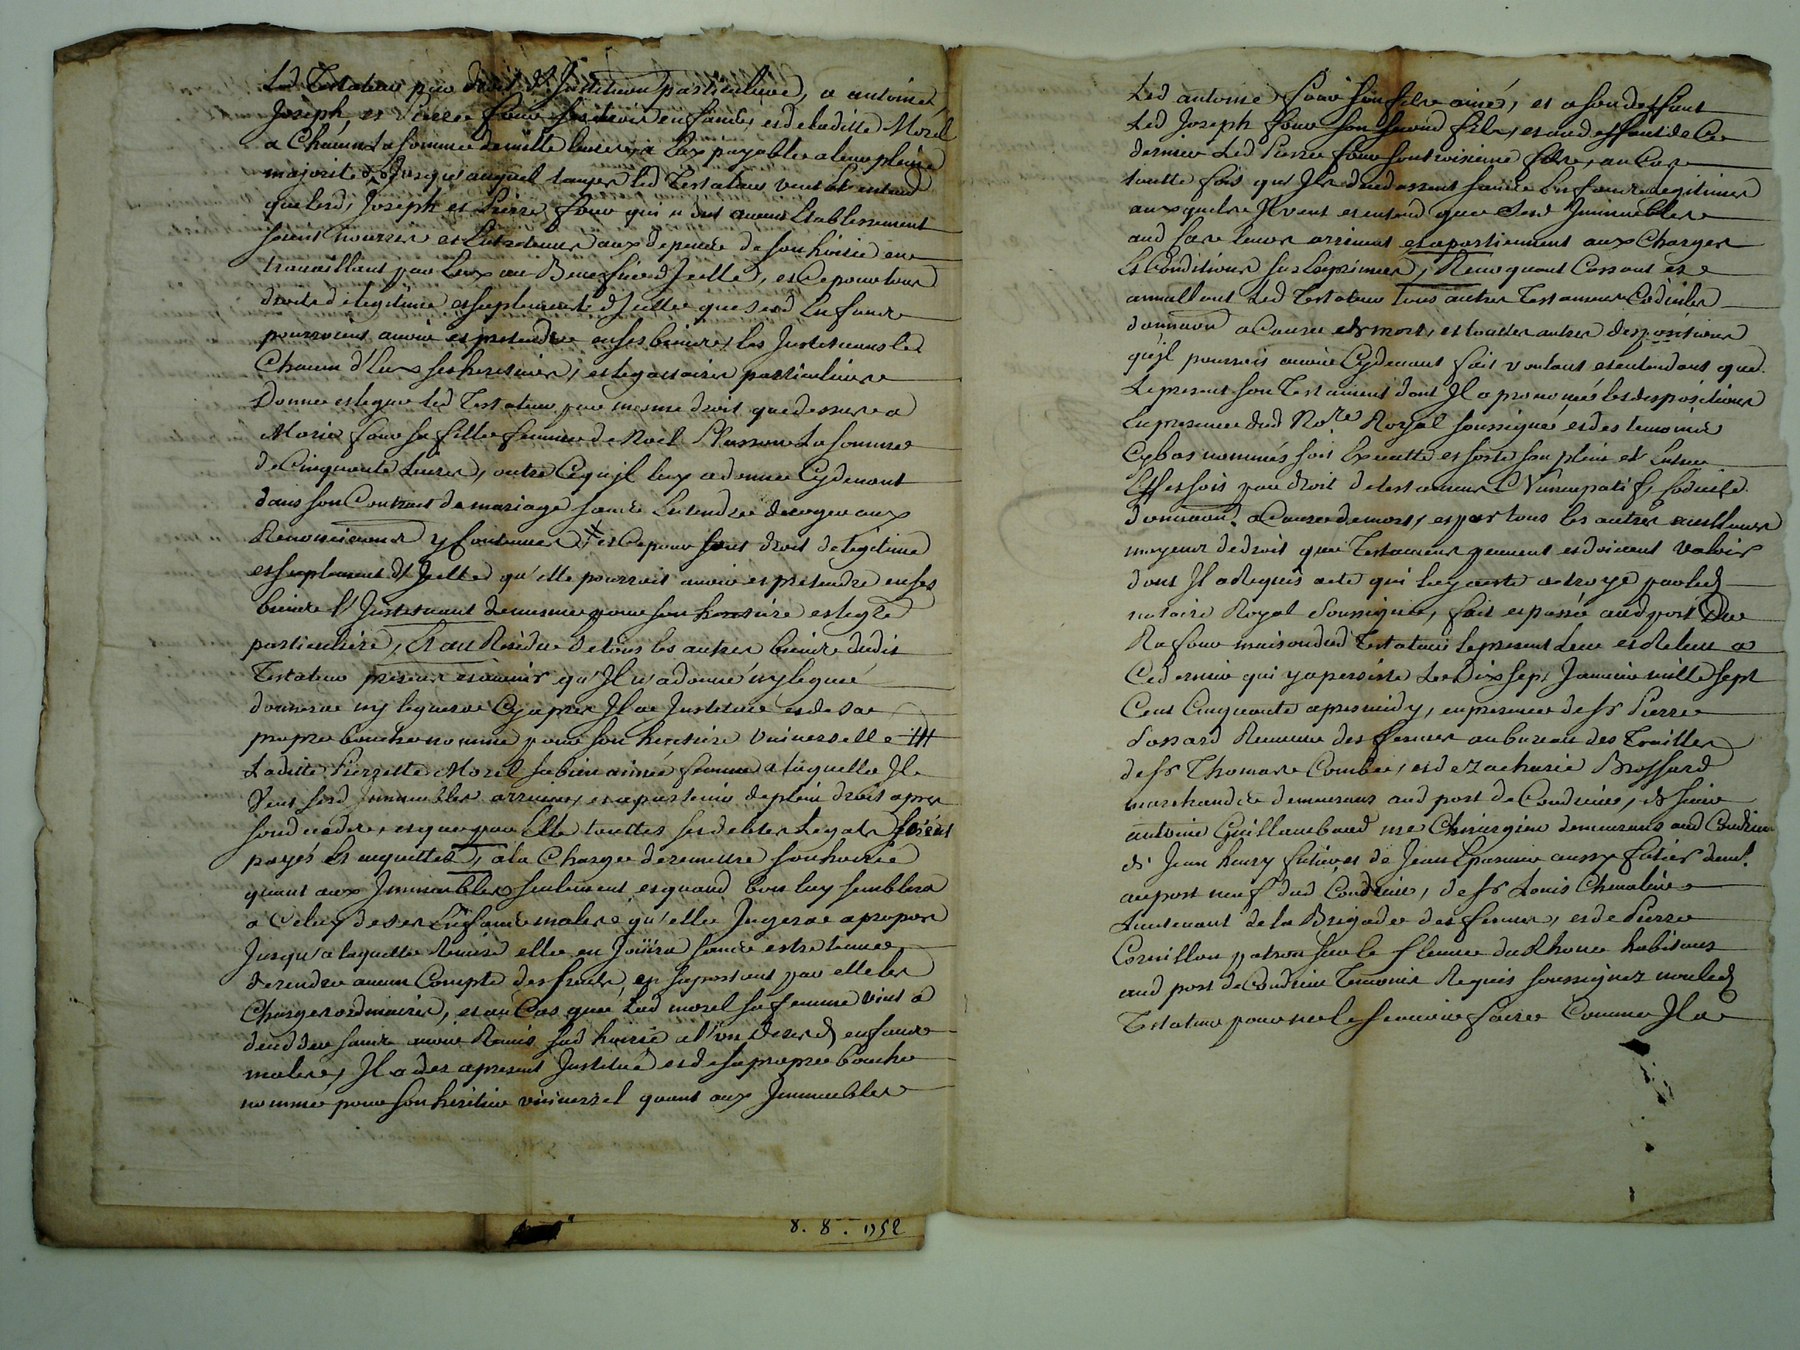 Led Testateur par droit d'Institution particuliere, a antoine
Joseph et Pierre four ses trois enfants, et de laditte Morel
a Chacun La somme de mille Livres a Eux payable a leur pleine
majorité Jusqu'auquel temps led Testateur veut et entend
que lesd, Joseph et Pierre four qui n'ont aucun Etablissement
soient nourris et Entretenus aux depends de son hoirie en
travaillant par Eux au Beneffice d'Icelle, et Ce pour tous
droits de legitime et suplement d'Icelle que sesd Enfants
pourroient avoir et pretendre en ses biens, les Instituant les
Chacun d'Eux ses heretiers, et legataires particuliers
Donne et legue led Testateur par meme droit que dessus a
Marie four sa fille femme de Noël La somme
de Cinquante Livres, outre Ce qu'jl luy a donné Cydevant
dans son Contract de mariage sans Entendre deroger aux
Renonciations y Contenues et Ce pour tout droit de legitime
et suplement d'Icelle qu'elle pourroit avoir et pretendre en ses
biens l'Instituant de meme pour son heretiere et legre
particuliere, Et au Residue de tous les autres biens dudit
Testateur presents et avenir qu'Jl n'a donné ny legué
donnera ny leguera Cyapres Jl a Institué et de sa
propre bouche nommé pour son heretiere universelle
Laditte Pierrette Morel sa bien aimée femme a laquelle Jl
Veut sesd Immeubles arriver, et apartenir de plein droit apres
son deceds, et que par Elle touttes ses debtes Legats soient
payés Et acquittés, a la Charge de remettre son hoirie
quant aux Immeubles seulement, et quand bon luy semblera
a Celuy de ses Enfants males qu'elle Jugera apropos
Jusqu'a laquelle Remise elle en Joüira sans estre tenue
de rendre aucun Compte des fruits, en suportant par elle les
Charges ordinaires, et au Cas que Lad morel sa femme vint a
decedder sans avoir Remis sad hoirie a l'un de sesd enfants
males, Jl a des apresent Institué et de sa propre bouche
nommé pour son héritier universel quant aux Immeubles
8. 8. 1752
Led antoine four son fils ainés, et a son deffaut
Led Joseph four son second fils, et au deffaut de Ce
dernier Led Pierre four son troisieme fils, au Cas
toutte fois qu'Jls deceddassent sans Enfants legitimes
auxquels Jl veut et entend que sesd Immeubles
aud Cas leurs arrivent et apartiennent aux Charges
Et Conditions sus Exprimées, Revoquant Cassant et
annullant Led Testateur tous autres Testaments Codicilles
donnaon a Cause de mort, et touttes autres dispositions
qu'jl pourroit avoir Cydevant fait voulant et entendant que
Le present son Testament dont Jl a prononcé les dispositions
En presence dud No.re Royal soussigné et des temoins
Cybas nommés soit Execuitté et sorte son plein et Entier
Effet soit par droit de testament Nuncupatif, Codicile
donnaon a Cause de mort, et par tous les autres meilleurs
moyens de droit que Testament peuvent et doivent valoir
dont Jl a Requis acte qui luy a esté octroyé par led
notaire Royal soussigné, fait et passé aud port De
Ra four maison dud Testateur le present Leu et Releu a
Ce dernier qui y a persisté Le Dix sept Janvier mille sept
Cent Cinquante apres midy, en presence de sr Pierre
Lossard Receveur des fermes au bureau des Trailles
de sr Thomas Combe, et de Zacharie Brossard
marchands demeurans aud port de Condrieu, de sieur
antoine Guillambaud me Chirurgien demeurans aud Condrieu
de Jean haury futiers et de Jean Eparvier aussy futier demt.
au port neuf dud Condrieu, de sr Louis Chevalier
Lieutenant de la Brigade des fermes, et de Pierre
Cornillon patron sur le fleuve du Rhone habitans
aud port de Condrieu Temoins Requis soussignez non led
Testateur pour ne le scavoir faire Comme Jl a